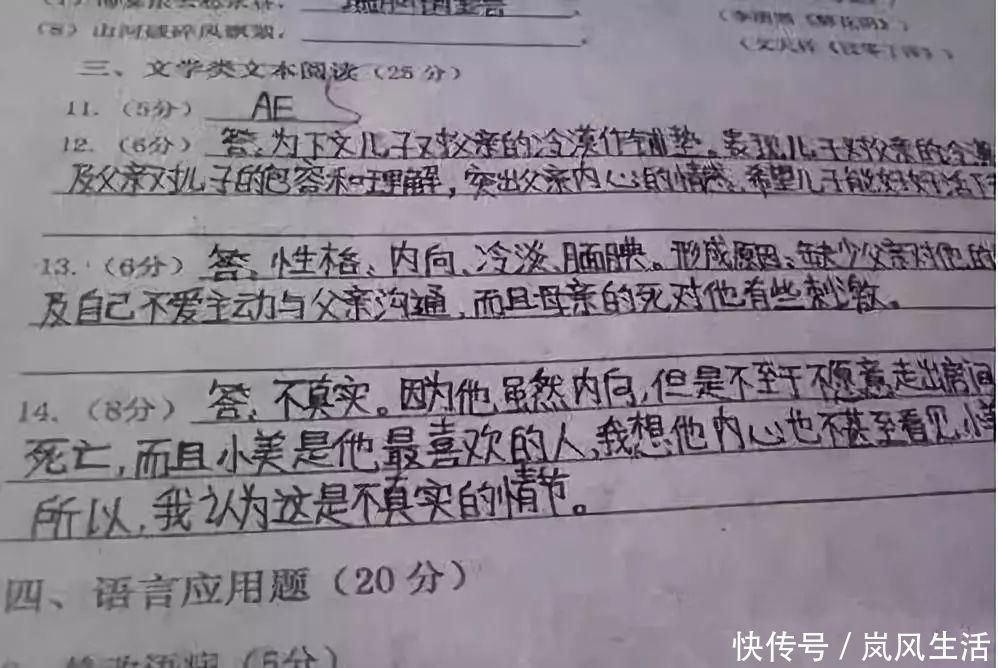 (8) 山河破碎风飘絮，
三、文学类文本阅读（25分）
11. （5分） AE
12. （6分） 答：为下文儿子对父亲的冷漠作铺垫。表现儿子对父亲的冷漠
及父亲对儿子的包容和理解，突出父亲内心的情感。希望儿子能好好活下
13. （6分） 答：性格：内向、冷淡、腼腆。形成原因：缺少父亲对他的
及自己不爱主动与父亲沟通，而且母亲的死对他有些刺激。
14. （8分） 答：不真实。因为他虽然内向，但是不至于不愿意走出房间
死亡，而且小美是他最喜欢的人，我想他内心也不甚至看见小美
所以，我认为这是不真实的情节。
四、语言应用题（20分）
修改语病（5分）
快传号 / 岚风生活